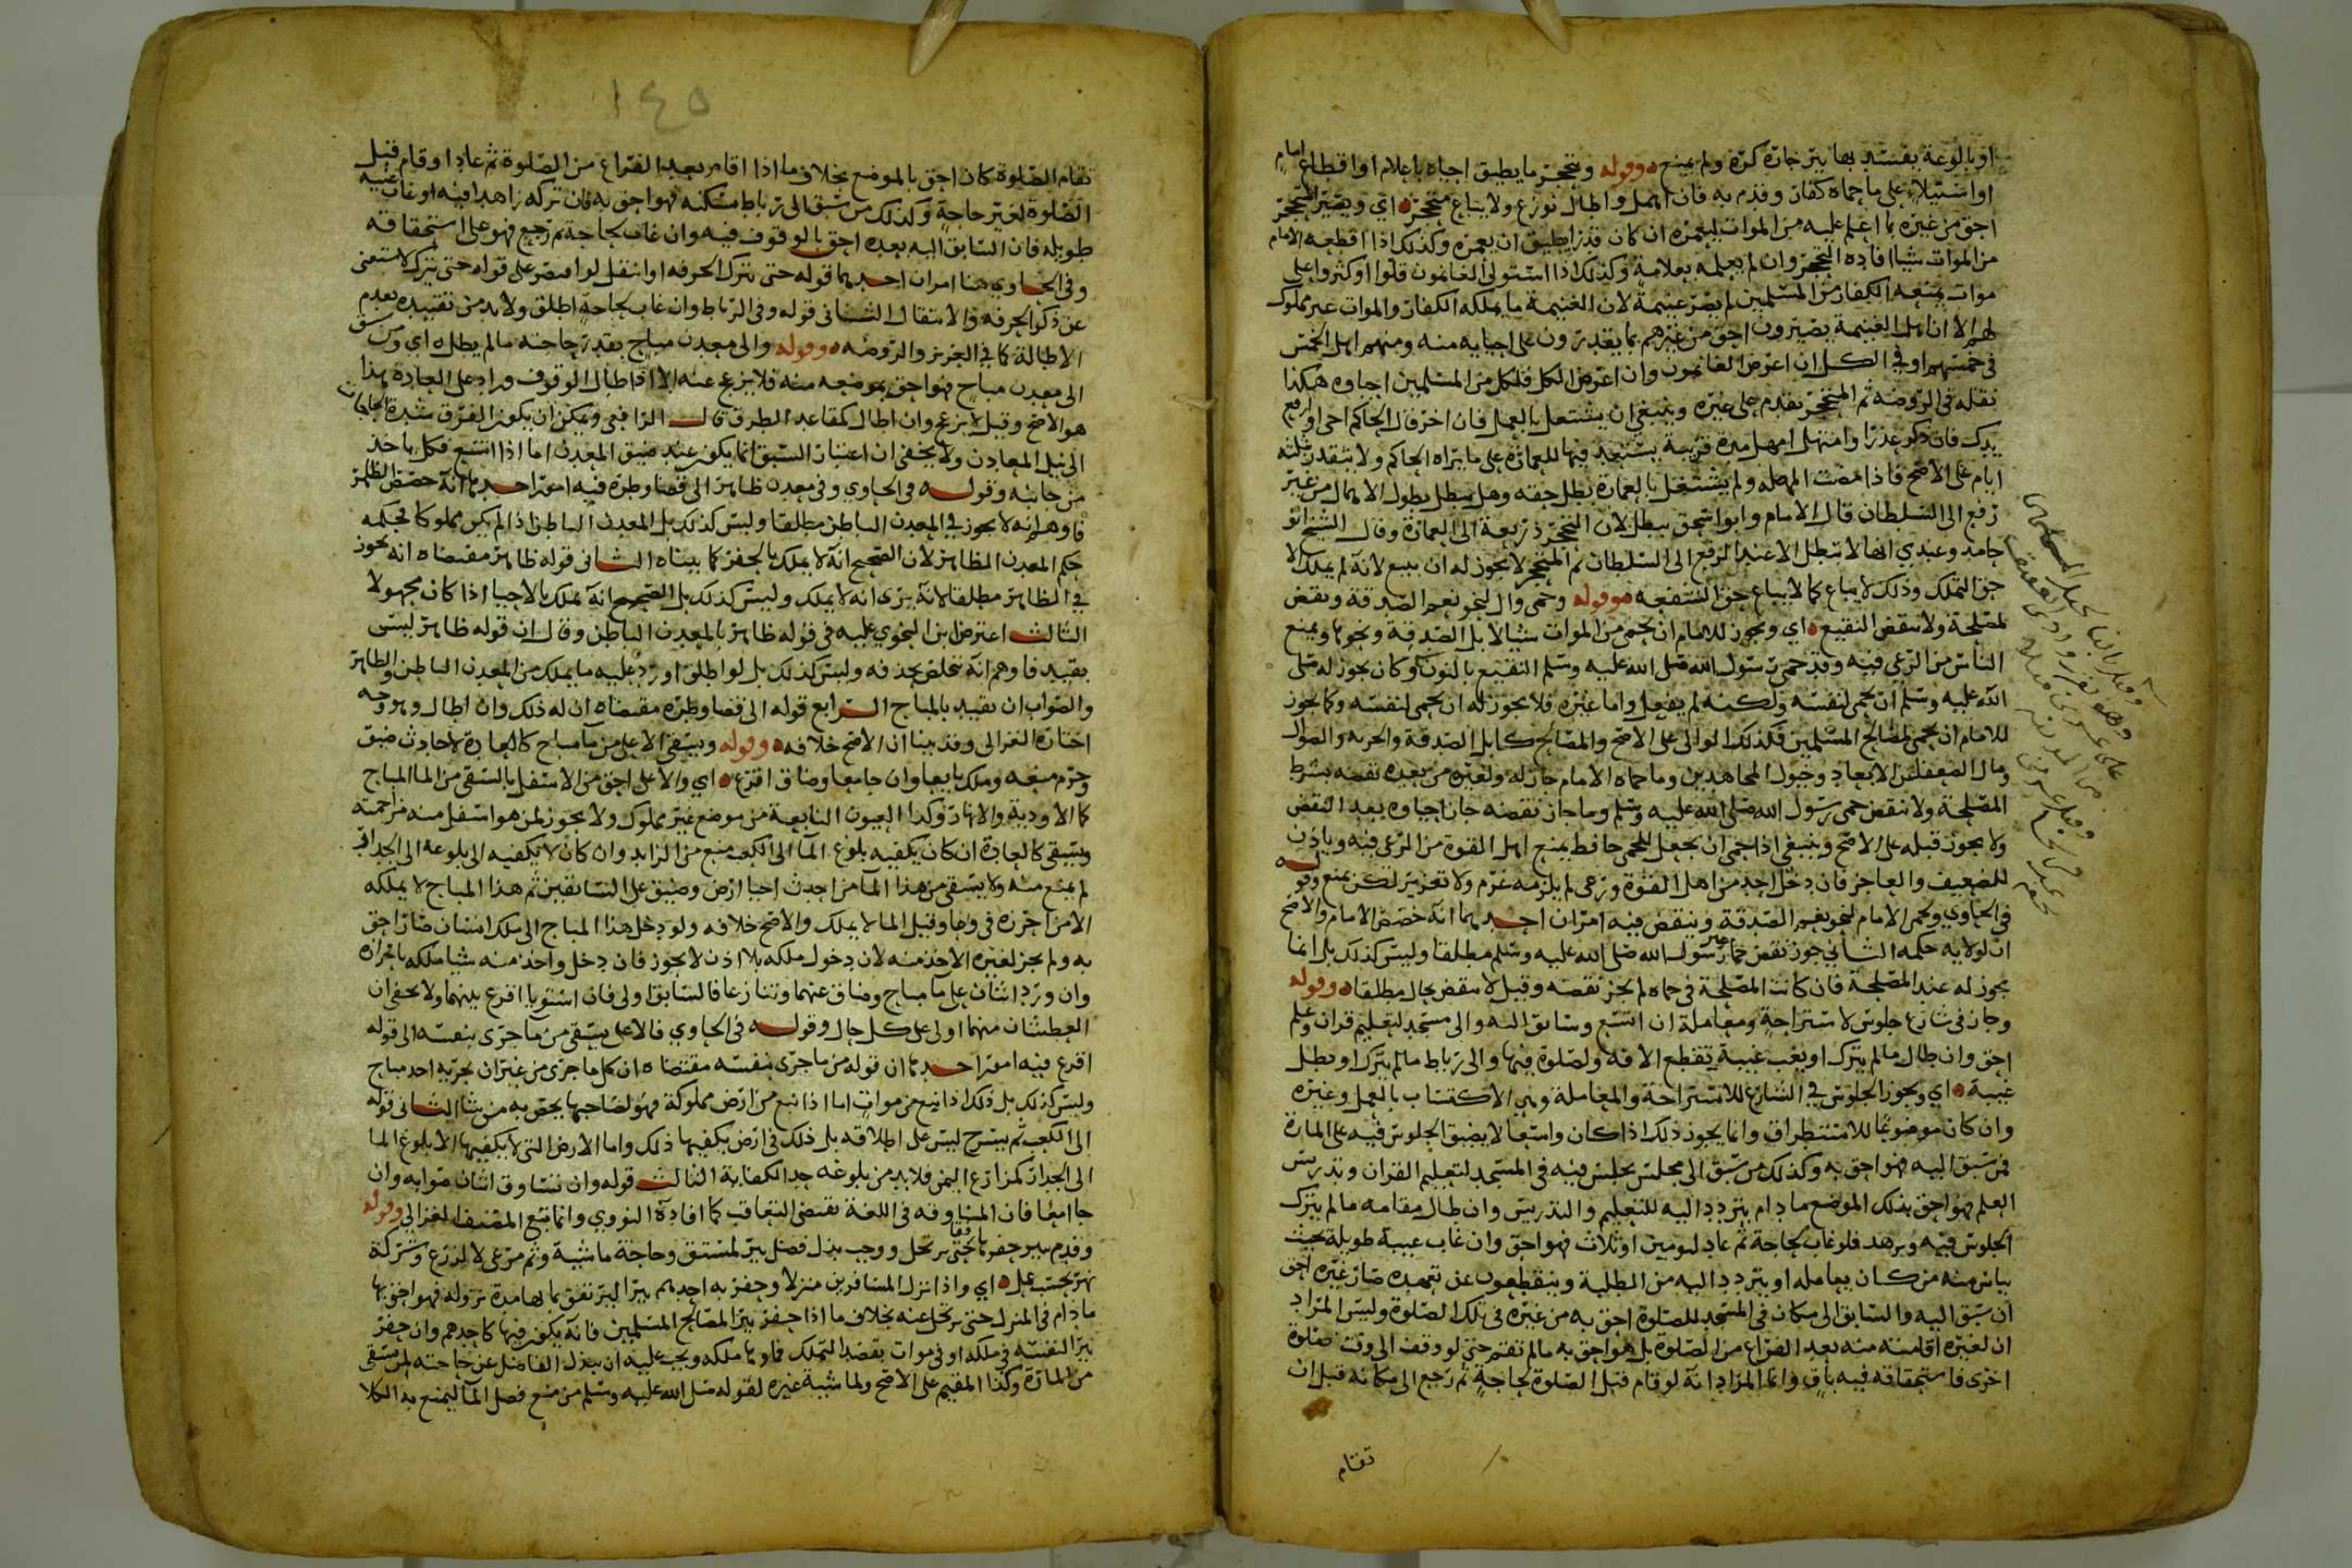 او بالوعة يفسد بها بير جاره كره ولم يمنع وقوله ومتحجر ما يطيق احياه باعلام او اقطاع امام
او استيلاء على ما حماه كفار وقدم به فان اهمل واطال نوزع ولا يباع متحجره اي ويصير المتحجر
احق من غيره بما اعلم عليه من الموات ليعمره ان كان قدرا يطيق ان يعمره وكذلك اذا اقطعه الامام
من الموات شيا افاده التحجر وان لم يعلمه بعلامة وكذلك اذا استولى الغانمون قلوا او كثروا على
موات يمنعه الكفار من المسلمين لم يصر غنيمة لان الغنيمة ما يملكه الكفار والموات غير مملوك
لهم الا ان اهل الغنيمة يصيرون احق من غيرهم بما يقدرون على احيايه منه ومنهم اهل الخمس
في خمسهم او في الكل ان اعرض الغانمون وان اعرض الكل فلكل من المسلمين احياوه هكذا
نقله في الروضه ثم المتحجر يقدم على غيره وينبغي ان يشتغل بالعمل فان اخر قال الحاكم احي او ارفع
يدك فان ذكر عذرا وامتهل امهل مدة قريبة يستعد فيها للعمارة على ما يراه الحاكم ولا يتقدر بثلثه
ايام على الاصح فاذا مضت المهله ولم يشتغل بالعمارة بطل حقه وهل يبطل بطول الاهمال من غير
رفع الى السلطان قال الامام وابو اسحق يبطل لان التحجر ذريعة الى العمارة وقال الشيخ ابو
حامد وعندي انها لا تبطل الا عند الرفع الى السلطان ثم المتحجر لا يجوز له ان يبيع لانه لم يملك الا
حق التملك وذلك لا يباع كما لا يباع حق الشفعه وقوله وحمى وال لنحو نعم الصدقة ونقض
لمصلحة ولا ينقض النقيع اي ويجوز للامام ان يحمي من الموات شيا لابل الصدقة ونحوها ويمنع
الناس من الرعي فيه وقد حمى رسول الله صلى الله عليه وسلم النقيع بالنون وكان يجوز له صلى
الله عليه وسلم ان يحمي لنفسه ولكنه لم يفعل واما غيره فلا يجوز له ان يحمي لنفسه وكما يجوز
للامام ان يحمي لمصالح المسلمين فكذلك الوالي على الاصح والمصالح كابل الصدقة والجزيه والضوال
ومال الضعفا عن الابعاد وخيول المجاهدين وما حماه الامام جاز له ولغيره من بعده نقضه بشرط
المصلحة ولا ينقض حمى رسول الله صلى الله عليه وسلم وما جاز نقضه جاز احياوه بعد النقض
ولا يجوز قبله على الاصح وينبغي اذا حمى ان يجعل للحمى حافظ يمنع اهل القوة من الرعي فيه وياذن
للضعيف والعاجز فان دخل احد من اهل القوة ورعى لم يلزمه غرم ولا تعزير لكن يمنع وقوله
في الحاوي وحمى الامام لنحو نعم الصدقة وينقض فيه امران احدهما انه خصص الامام والاصح
ان لولايه حكمه الثاني جوز نقض حما غير رسول الله صلى الله عليه وسلم مطلقا وليس كذلك بل انما
يجوز له عند المصلحة فان كانت المصلحة في حماه لم يجز نقضه وقيل لا ينقض بحال مطلقا وقوله
وجاز في شارع جلوس لاستراحة ومعاملة ان اتسع وسابق اليه والى مسجد لتعليم قران وعلم
احق وان طال ما لم يترك او يغب غيبة تقطع الافه ولصلوة فيها والى رباط ما لم يترك او تطل
غيبة اي ويجوز الجلوس في الشارع للاستراحة والمعاملة وهي الاكتساب بالعمل وغيره
وان كان موضوعا للاستطراق وانما يجوز ذلك اذا كان واسعا لا يضيق الجلوس فيه على المارة
فمن سبق اليه فهو احق به وكذلك من سبق الى مجلس يجلس فيه في المسجد لتعليم القران وتدريس
العلم فهو احق بذلك الموضع ما دام يتردد اليه للتعليم والتدريس وان طال مقامه ما لم يترك
الجلوس فيه ويزهد فلو غاب لحاجة ثم عاد ليومين او ثلاث فهو احق وان غاب غيبة طويلة بحيث
يياس منه من كان يعامله او يتردد اليه من الطلبة وينقطعون عن تعهده صار غيره احق
ان سبق اليه والسابق الى مكان في المسجد للصلوة احق به من غيره في تلك الصلوة وليس المراد
ان لغيره اقامته منه بعد الفراغ من الصلوة بل هو احق به ما لم يقم حتى لو وقف الى وقت صلوة
اخرى فاستحقاقه فيه باق وانما المراد انه لو قام قبل الصلوة لحاجة ثم رجع الى مكانه قبل ان
تقام
١٤٥
تقام الصلوة كان احق بالموضع بخلاف ما اذا اقام بعد الفراغ من الصلوة ثم عاد او قام قبل
الصلوة لغير حاجة وكذلك من سبق الى رباط مسكنه فهو احق به فان تركه زاهدا فيه او غاب غيبه
طويله فان السابق اليه بعده احق بالوقوف فيه وان غاب لحاجة ثم رجع فهو على استحقاقه
وفي الحاوي هنا امران احدهما قوله حتى يترك الحرفه او انتقل لو اقتصر على قوله حتى يترك لاستغنى
عن ذكر الحرفه والانتقال الثاني قوله وفي الرباط وان غاب لحاجة اطلق ولا بد من تقييده بعدم
الاطالة كما في العزيز والروضه وقوله والى معدن مباح بقدر حاجته ما لم يطل اي ومن سبق
الى معدن مباح فهو احق بموضعه منه فلا يزعج عنه الا اذا اطال الوقوف وزاد على العادة هذا
هو الاصح وقيل لا يزعج وان اطال كمقاعد الطرق قال الرافعي ويمكن ان يكون الفرق شدة الحاجات
الى نيل المعادن ولا يخفى ان اعتبار السبق انما يكون عند ضيق المعدن اما اذا اتسع فكل ياخذ
من جانبه وقوله في الحاوي وفي معدن ظاهر الى قضا وطره فيه امور احدها انه خصص الظاهر
فاوهم انه لا يجوز في المعدن الباطن مطلقا وليس كذلك بل المعدن الباطن اذا لم يكن مملوكا فحكمه
حكم المعدن الظاهر لان الصحيح انه لا يملك بالحفر كما بيناه الثاني قوله ظاهر مقتضاه انه يجوز
في الظاهر مطلقا لانه يرى انه لا يملك وليس كذلك بل الصحيح انه يملك بالاحيا اذا كان مجهولا
الثالث اعترض ابن النحوي عليه في قوله ظاهر بالمعدن الباطن وقال ان قوله ظاهر ليس
بقيد فاوهم انه تخلص بحذفه وليس كذلك بل لو اطلق اورد عليه ما يملك من المعدن الباطن والظاهر
والصواب ان تقييد بالمباح الرابع قوله الى قضا وطره مقتضاه ان له ذلك وان اطال وهو وجه
اختاره الغزالي وقد بينا ان الاصح خلافه وقوله ويسقي الاعلى من ما مباح كالعادة لاحادث ضيق
وحرم منعه وملك بايعا وان جا معا وضاق اقرع اي والاعلى احق من الاسفل بالسقي من الما المباح
كالاودية والانهار وكذا العيون النابعة من موضع غير مملوك ولا يجوز لمن هو اسفل منه مزاحمته
ويسقي كالعادة ان كان يكفيه بلوغ المآ الى الكعب منع من الزايد وان كان لا يكفيه الا بلوغه الى الجدار
لم يمنع منه ولا يسقي من هذا المآ من احدث احيا ارض وضيق على السابقين ثم هذا المباح لا يملكه
الا من احرزه في وعا وقيل الما لا يملك والاصح خلافه ولو دخل هذا المباح الى ملك انسان صار احق
به ولم يجز لغيره الاخذ منه لان دخول ملكه بلا اذن لا يجوز فان دخل واخذ منه شيا ملكه باحرازه
وان ورد اثنان على ما مباح وضاق عنهما وتنازعا فالسابق اولى فان استويا اقرع بينهما ولا يخفى ان
العطشان منهما اولى على كل حال وقوله في الحاوي فالاعلى يسقي من ما جرى بنفسه الى قوله
اقرع فيه امور احدها ان قوله من ما جرى بنفسه مقتضاه ان كل ما جرى من غير ان يجريه احد مباح
وليس كذلك بل ذلك اذا نبع من موات اما اذا نبع من ارض مملوكة فهو لصاحبها يخص به من شا الثاني قوله
الى الكعب ثم يسرح ليس على اطلاقه بل ذلك في ارض يكفيها ذلك واما الارض التي لا يكفيها الا بلوغ الما
الى الجدار كمزارع اليمن فلا بد من بلوغه حد الكفاية الثالث قوله وان تساوق اثنان صوابه وان
جا امعا فان المساوقه في اللغة تقتضي التعاقب كما افاده النووي وانما تبع المصنف الغزالي وقوله
وقدم ببير حفرها رفقا حتى يرتحل ووجب بذل فضل بير لمستق وحاجة ماشية وثم مرعى لا لزرع وشركة
نهر بحسب عمل اي واذا نزل المسافرين منزلا وحفر به احدهم بيرا ليرتفق بها لها مدة نزوله فهو احق بها
ما دام في المنزل حتى يرتحل عنه بخلاف ما اذا حفر بير المصالح المسلمين فانه يكون فيها كاحدهم وان حفر
بيرا لنفسه في ملكه او في موات بقصد التملك فماوها ملكه ويجب عليه ان يبذل الفاضل عن حاجته لمن يستقي
من المارة وكذا المقيم على الاصح ولماشية غيره لقوله صلى الله عليه وسلم من منع فضل المآ ليمنع به الكلا